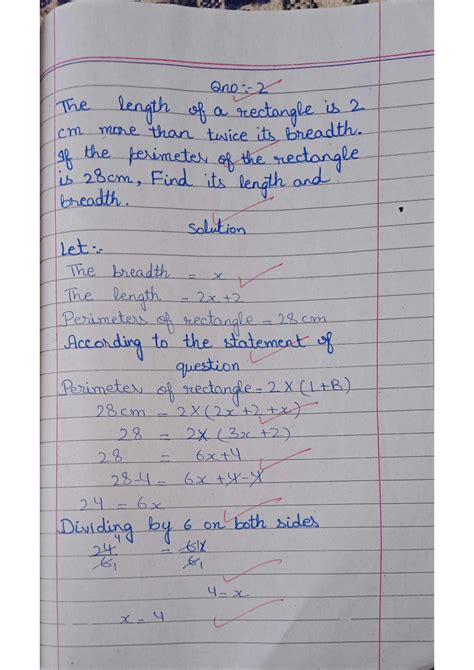 Qno:- 2
The length of a rectangle is 2
cm more than twice its breadth.
If the perimeter of the rectangle
is 28cm, Find its length and
breadth.
Solution
Let:-
The breadth = x
The length = 2x+2
Perimeters of rectangle = 28cm
According to the statement of
question
Perimeter of rectangle = 2 X (L+B)
28cm = 2X(2x+2+x)
28 = 2X (3x+2)
28 = 6x+4
28-4 = 6x +4-4
24 = 6x
Dividing by 6 on both sides
24/6 4 1 = 6x/6 1
4 = x
x = 4